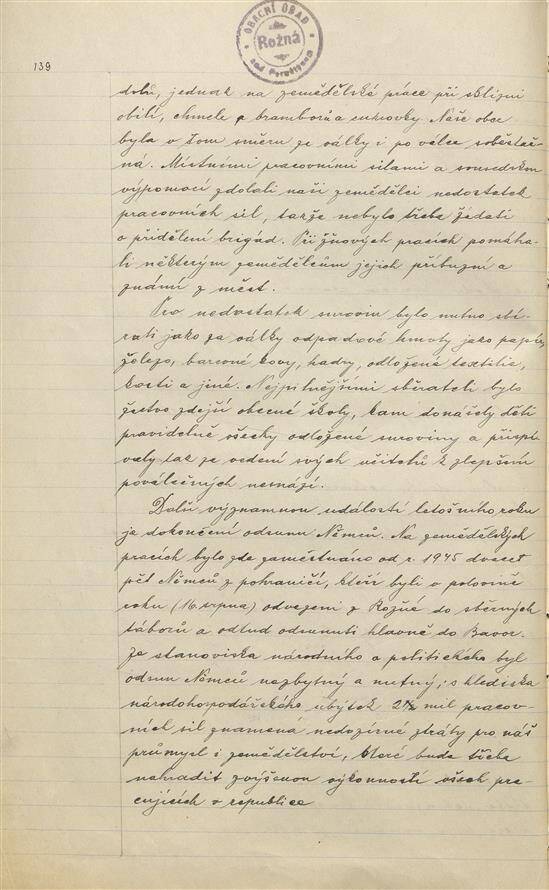 OBECNÍ ÚŘAD
Rožná
nad Pernštýnem
139
dolů, jednak na zemědělské práce při sklizni
obilí, chmele, bramborů a cukrovky. Naše obec
byla v tom směru za války i po válce soběstač-
ná. Místními pracovními silami a sousedskou
výpomocí zdolali naši zemědělci nedostatek
pracovních sil, takže nebylo třeba žádati
o přidělení brigád. Při žňových pracích pomáha-
li některým zemědělcům jejich příbuzní a
známí z měst.
Pro nedostatek surovin bylo nutno sbí-
rati jako za války odpadové hmoty jako papír,
železo, barevné kovy, hadry, odložené textilie,
kosti a jiné. Nejpilnějšími sběrateli bylo
žactvo zdejší obecné školy, kam donášely děti
pravidelně všecky odložené suroviny a přispí-
valy tak za vedení svých učitelů k zlepšení
poválečných nesnází.
Další významnou událostí letošního roku
je dokončení odsunu Němců. Na zemědělských
pracích bylo zde zaměstnáno od r. 1945 dvacet
pět Němců z pohraničí, kteří byli v polovině
roku (16. srpna) odvezeni z Rožné do sběrných
táborů a odtud odsunuti hlavně do Bavor.
Ze stanoviska národního a politického byl
odsun Němců nezbytný a nutný; s hlediska
národohospodářského úbytek 2½ mil pracov-
ních sil znamená nedozírné ztráty pro náš
průmysl i zemědělství, které bude třeba
nahradit zvýšenou výkonností všech pra-
cujících v republice